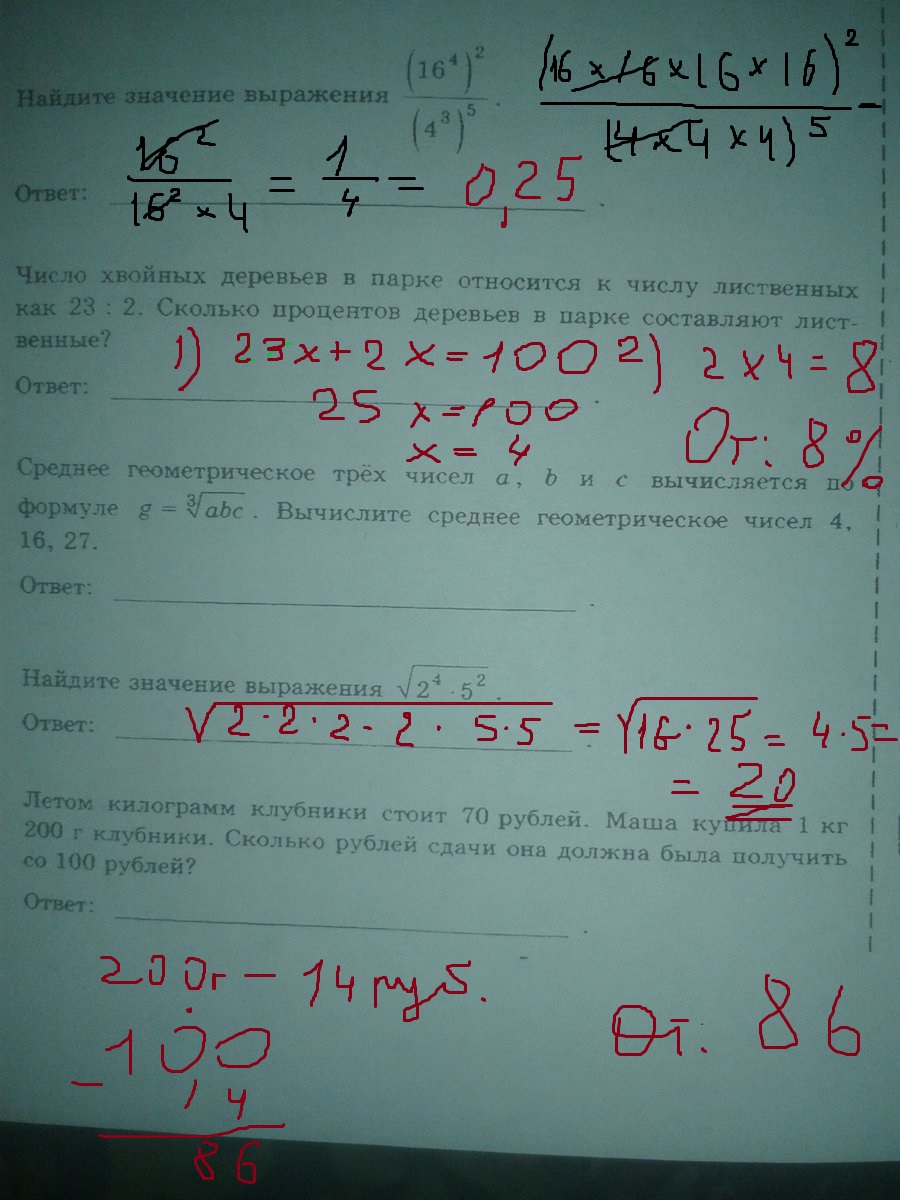 Найдите значение выражения (16⁴)² / (4³)⁵ . (16 × 16 × 16 × 16)² / (4 × 4 × 4)⁵ =
Ответ: 16² / 16² × 4 = 1 / 4 = 0,25 .
Число хвойных деревьев в парке относится к числу лиственных
как 23 : 2. Сколько процентов деревьев в парке составляют лист-
венные? 1) 23x + 2x = 100 2) 2 × 4 = 8
Ответ: 25 x = 100 .
x = 4 От: 8%
Среднее геометрическое трёх чисел a, b и c вычисляется по
формуле g = ∛abc . Вычислите среднее геометрическое чисел 4,
16, 27.
Ответ: .
Найдите значение выражения √2⁴ · 5² .
Ответ: √2 · 2 · 2 · 2 · 5 · 5 = √16 · 25 = 4 · 5 =
= 20
Летом килограмм клубники стоит 70 рублей. Маша купила 1 кг
200 г клубники. Сколько рублей сдачи она должна была получить
со 100 рублей?
Ответ: .
200г — 14 руб.
100
− 14
86
От. 86